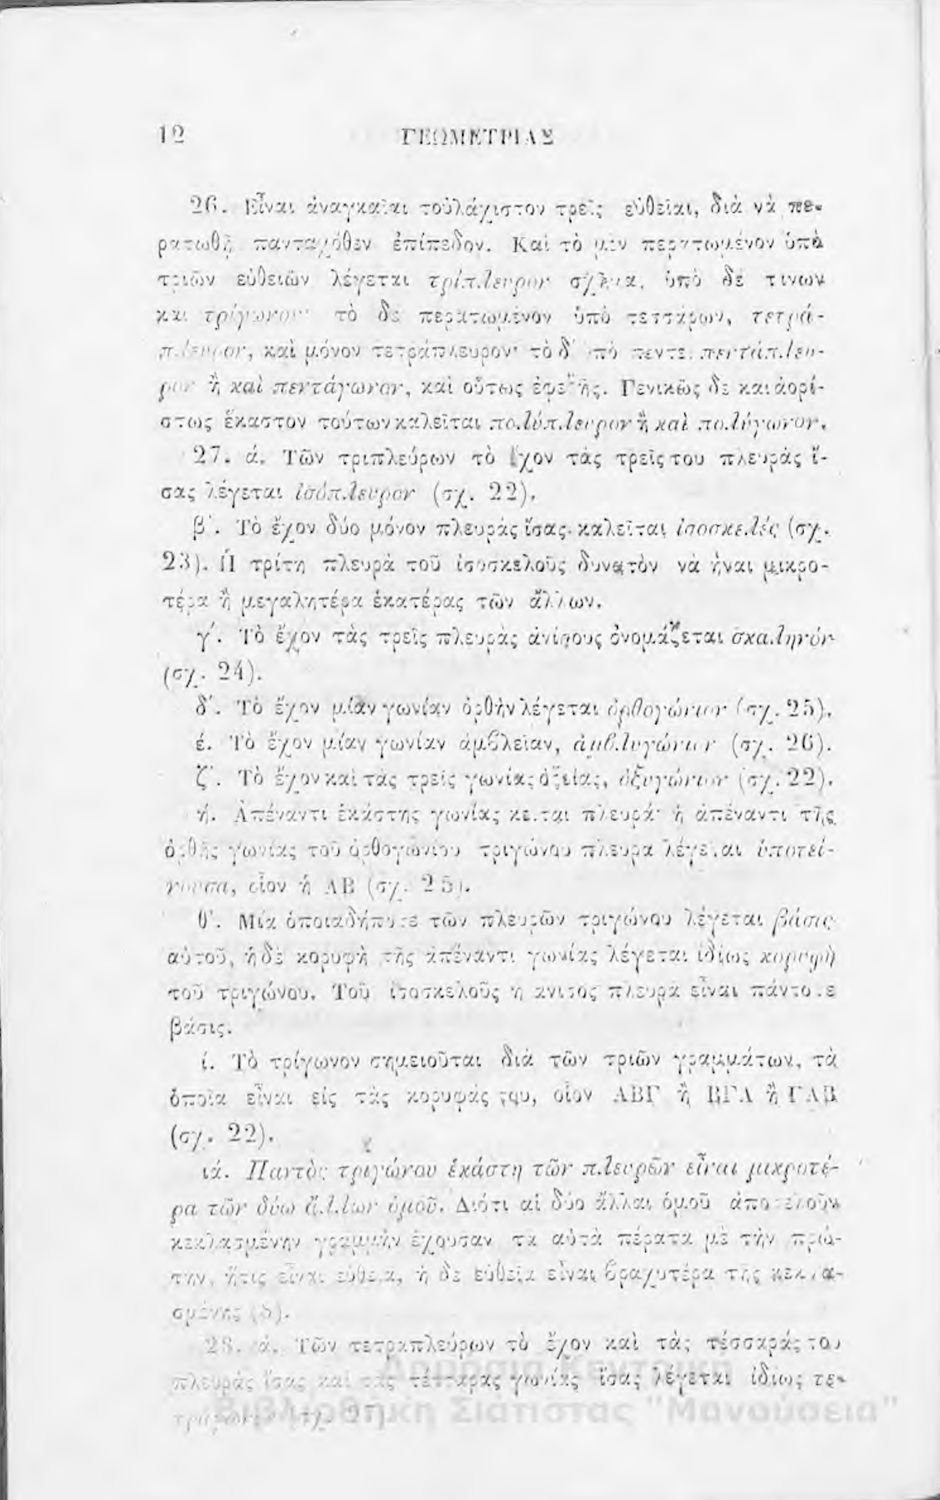 12 ΓΕΩΜΕΤΡΙΑΣ
26. Εἶναι ἀναγκαῖαι τοὐλάχιστον τρεῖς εὐθεῖαι, διὰ νὰ πε-
ρατωθῇ πανταχόθεν ἐπίπεδον. Καὶ τὸ μὲν περατωμένον ὑπὸ
τριῶν εὐθειῶν λέγεται τρίπλευρον σχῆμα, ὑπὸ δέ τινων
καὶ τρίγωνον· τὸ δὲ περατωμένον ὑπὸ τεσσάρων, τετρά-
πλευρον, καὶ μόνον τετράπλευρον· τὸ δ' ὑπὸ πέντε, πεντάπλευ-
ρον ἢ καὶ πεντάγωνον, καὶ οὕτως ἐφεξῆς. Γενικῶς δὲ καὶ ἀορί-
στως ἕκαστον τούτων καλεῖται πολύπλευρον ἢ καὶ πολύγωνον.
27. ά. Τῶν τριπλεύρων τὸ ἔχον τὰς τρεῖς του πλευρὰς ἴ-
σας λέγεται ἰσόπλευρον (σχ. 22).
β'. Τὸ ἔχον δύο μόνον πλευρὰς ἴσας καλεῖται ἰσοσκελές (σχ.
23). Ἡ τρίτη πλευρὰ τοῦ ἰσοσκελοῦς δυνατὸν νὰ ἦναι μικρο-
τέρα ἢ μεγαλητέρα ἑκατέρας τῶν ἄλλων.
γ'. Τὸ ἔχον τὰς τρεῖς πλευρὰς ἀνίσους ὀνομάζεται σκαληνόν
(σχ. 24).
δ'. Τὸ ἔχον μίαν γωνίαν ὀρθὴν λέγεται ὀρθογώνιον (σχ. 25).
έ. Τὸ ἔχον μίαν γωνίαν ἀμβλεῖαν, ἀμβλυγώνιον (σχ. 26).
ζ'. Τὸ ἔχον καὶ τὰς τρεῖς γωνίας ὀξείας, ὀξυγώνιον (σχ. 22).
ή. Ἀπέναντι ἑκάστης γωνίας κεῖται πλευρά· ἡ ἀπέναντι τῆς
ὀρθῆς γωνίας τοῦ ὀρθογωνίου τριγώνου πλευρὰ λέγεται ὑποτεί-
νουσα, οἷον ἡ ΑΒ (σχ. 25).
θ'. Μία ὁποιαδήποτε τῶν πλευρῶν τριγώνου λέγεται βάσις
αὐτοῦ, ἡ δὲ κορυφὴ τῆς ἀπέναντι γωνίας λέγεται ἰδίως κορυφὴ
τοῦ τριγώνου. Τοῦ ἰσοσκελοῦς ἡ ἄνισος πλευρὰ εἶναι πάντοτε
βάσις.
ί. Τὸ τρίγωνον σημειοῦται διὰ τῶν τριῶν γραμμάτων, τὰ
ὁποῖα εἶναι εἰς τὰς κορυφάς του, οἷον ΑΒΓ ἢ ΒΓΑ ἢ ΓΑΒ
(σχ. 22).
ιά. Παντὸς τριγώνου ἑκάστη τῶν πλευρῶν εἶναι μικροτέ-
ρα τῶν δύω ἄλλων ὁμοῦ. Διότι αἱ δύο ἄλλαι ὁμοῦ ἀποτελοῦν
κεκλασμένην γραμμὴν ἔχουσαν τὰ αὐτὰ πέρατα μὲ τὴν πρώ-
την, ἥτις εἶναι εὐθεῖα, ἡ δὲ εὐθεῖα εἶναι βραχυτέρα τῆς κεκλα-
σμένης (8).
28. ά. Τῶν τετραπλεύρων τὸ ἔχον καὶ τὰς τέσσαράς του
πλευρὰς ἴσας καὶ τὰς τέσσαρας γωνίας ἴσας λέγεται ἰδίως τε-
τράγωνον (σχ. 27).
Δημόσια Κεντρική
Βιβλιοθήκη Σιάτιστας "Μανούσεια"